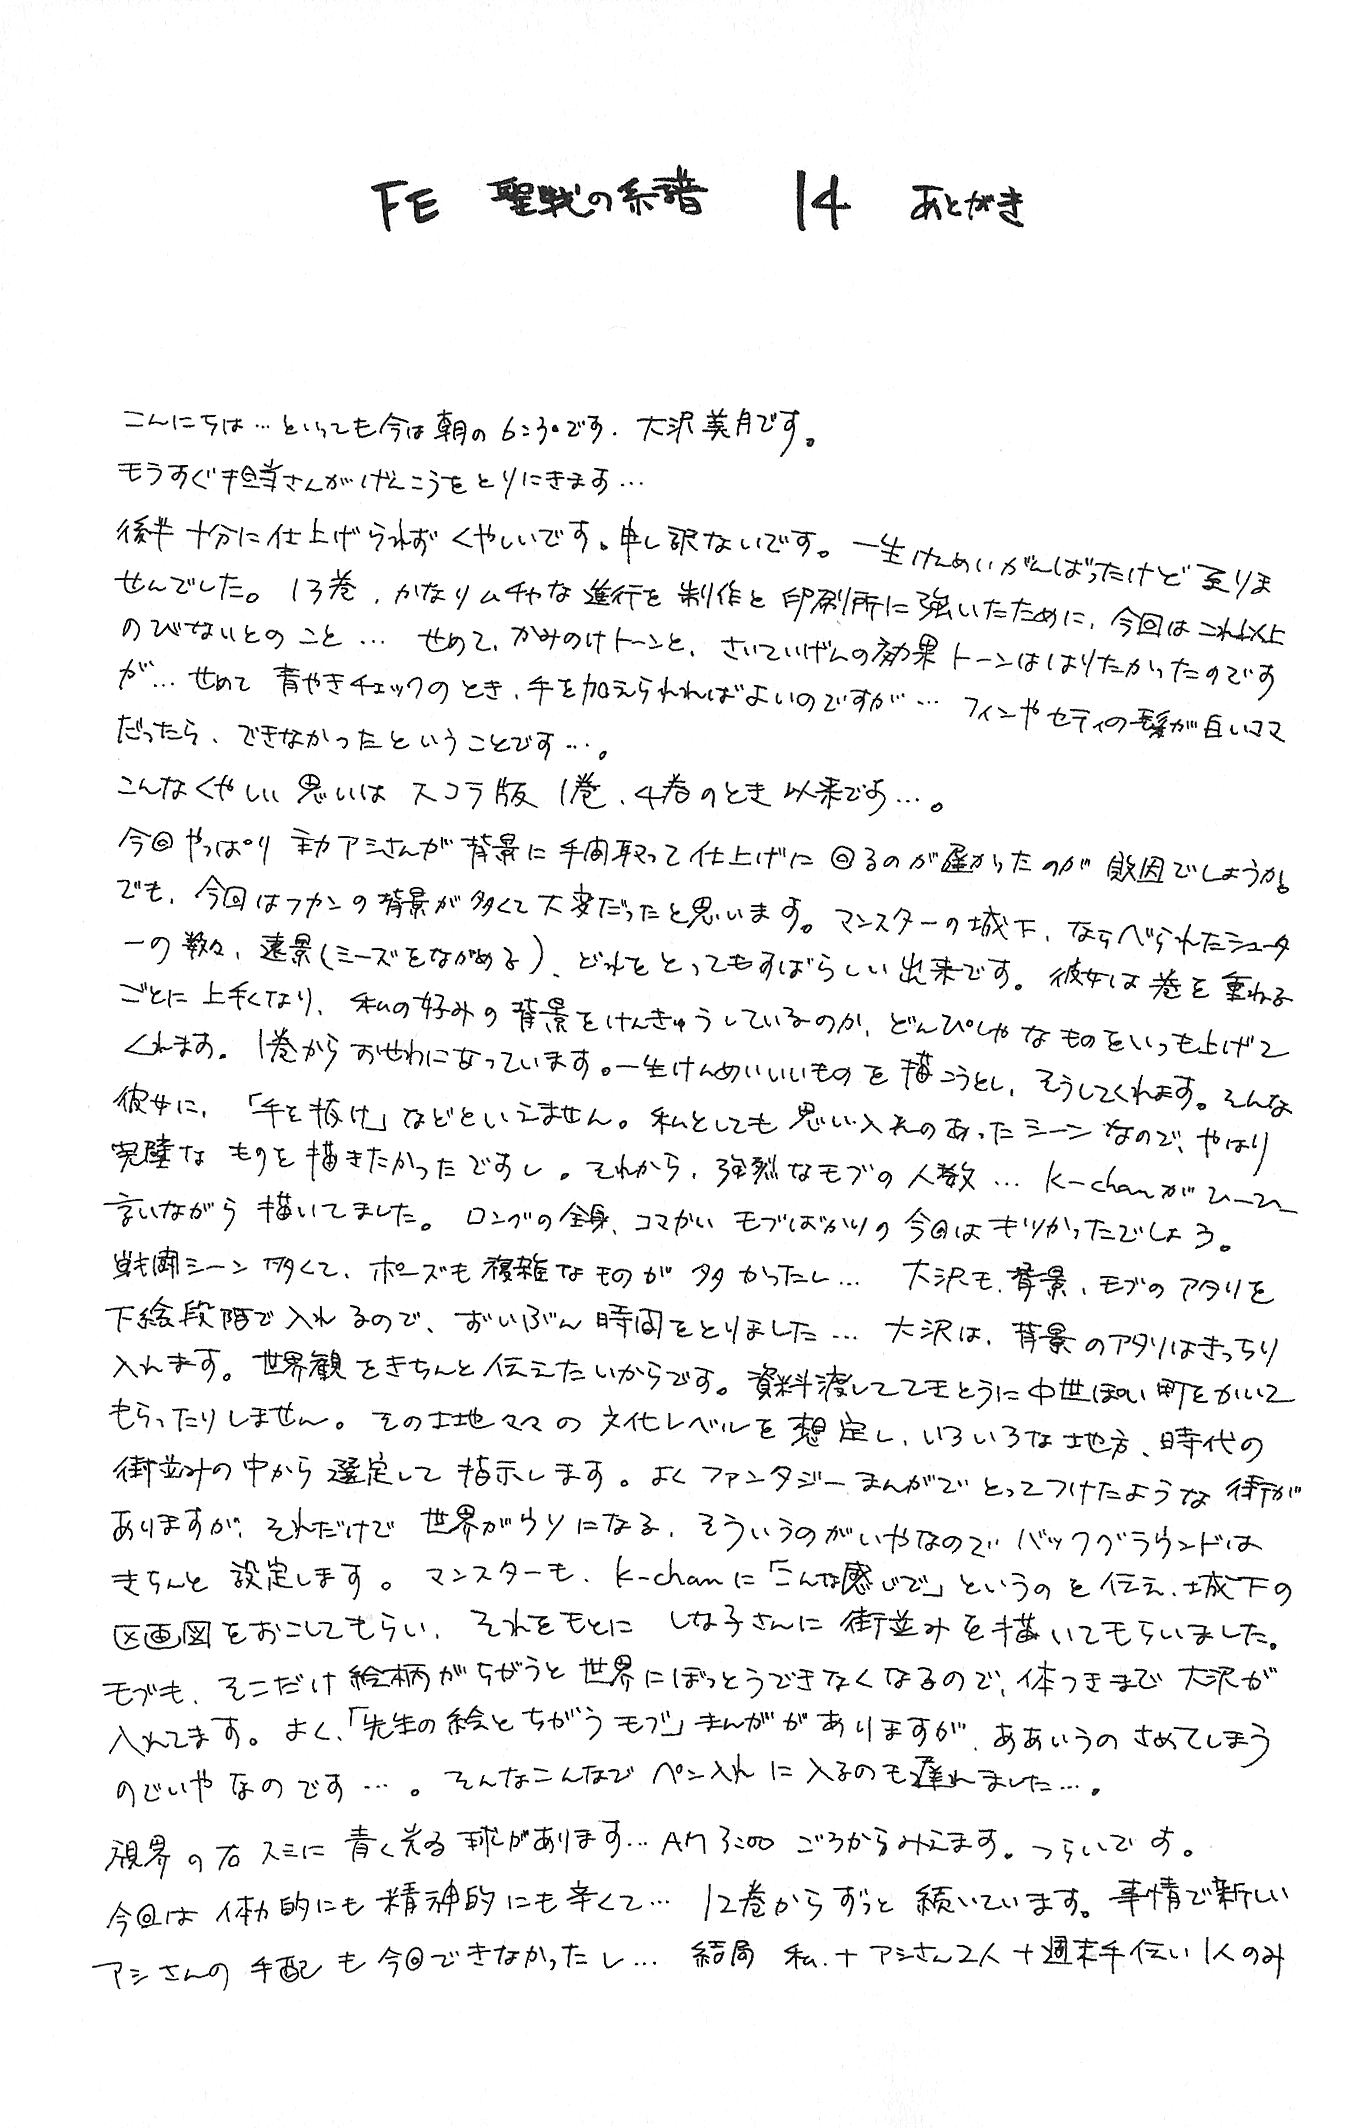 FE 聖戦の系譜 14 あとがき
こんにちは…といっても今は朝の6:30です. 大沢美月です。
モうすぐ担当さんがげんこうをとりにきます…
後半 十分に仕上げられず くやしいです。申し訳ないです。一生けんめいがんばったけど 至りま
せんでした。13巻、かなりムチャな進行を 制作と印刷所に強いたために、今回はこれ以上
のびないとのこと… せめて、かみのけトーンと、さいていげんの効果トーンははりたかったのです
が… せめて 青やきチェックのとき、手を加えられればよいのですが… フィンやセティの髪が白いママ
だったら、できなかったということです…。
こんなくやしい思いは スコラ版 1巻、4巻のとき以来です…。
今回やっぱり 主力アシさんが背景に手間取って仕上げに回るのが遅かったのが 敗因でしょうか。
でも、今回はフカンの背景が多くて大変だったと思います。マンスターの城下、ならべられたシュータ
ーの数々、遠景(ミーズをながめる)、どれをとってもすばらしい出来です。彼女は巻を重ねる
ごとに上手くなり、私の好みの背景をけんきゅうしているのか、どんぴしゃなものをいつも上げて
くれます。1巻からおせわになっています。一生けんめいいいものを描こうとし、そうしてくれます。そんな
彼女に、「手を抜け」などといえません。私としても思い入れのあったシーンなので、やはり
完璧なものを描きたかったですし。それから、強烈なモブの人数… K-chanがひーひー
言いながら描いてました。ロングの全身、コマかいモブばかりの今回はキツかったでしょう。
戦闘シーン多くて、ポーズも複雑なものが多かったし… 大沢も、背景、モブのアタリを
下絵段階で入れるので、ずいぶん時間をとりました… 大沢は、背景のアタリはきっちり
入れます。世界観をきちんと伝えたいからです。資料渡しててきとうに中世ぽい町をかいて
もらったりしません。その土地ママの文化レベルを想定し、いろいろな地方、時代の
街並みの中から選定して指示します。よくファンタジーまんがでとってつけたような街が
ありますが、それだけで世界がウソになる、そういうのがいやなのでバックグラウンドは
きちんと設定します。マンスターも、K-chanに「こんな感じで」というのを伝え、城下の
区画図をおこしてもらい、それをもとに しな子さんに街並みを描いてもらいました。
モブも、そこだけ絵柄がちがうと世界にぼっとうできなくなるので、体つきまで大沢が
入れてます。よく、「先生の絵とちがうモブ」まんががありますが、ああいうのさめてしまう
のでいやなのです…。そんなこんなでペン入れに入るのも遅れました…。
視界の右スミに青く光る球があります… AM3:00ごろからみえます。つらいです。
今回は体力的にも精神的にも辛くて… 12巻からずっと続いています。事情で新しい
アシさんの手配も今回できなかったし… 結局 私+アシさん2人+週末手伝い1人のみ